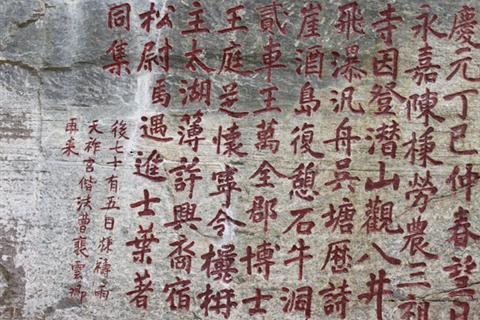 慶元丁巳仲春望日
永嘉陳楝勞農三祖
寺因登潛山觀八井
飛瀑汎舟吳塘歷詩
崖酒島復憩石牛洞
貳車王萬全郡博士
王庭芝懷寧令
主太湖薄許興裔宿
松尉馬遇進士葉著
同集
後七十有五日楝禱雨
天祚宮偕法曹裴雲卿
再來